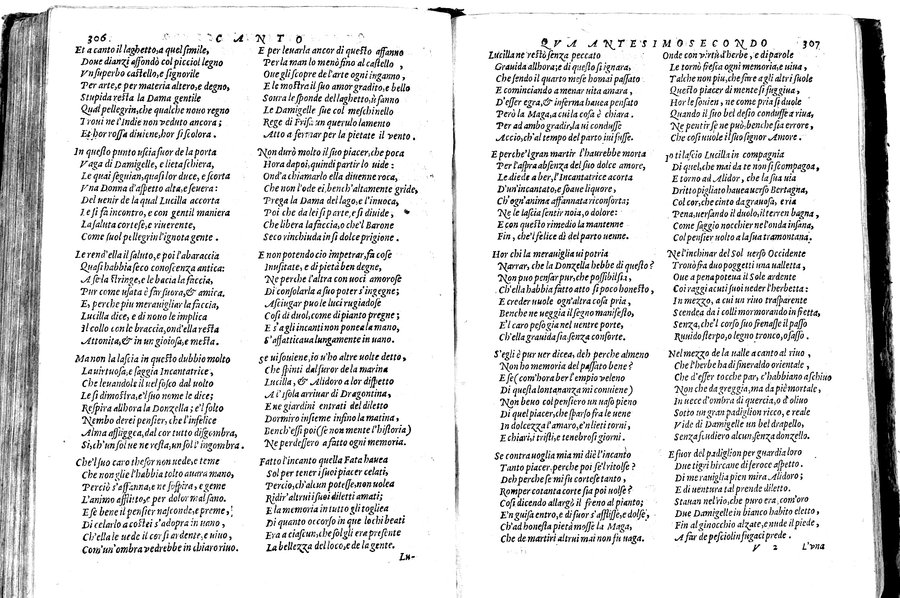 306. CANTO
Et a canto il laghetto, a quel simile,
Doue dianzi affondò col picciol legno
Vn superbo castello, e signorile
Per arte, e per materia altero, e degno,
Stupida resta la Dama gentile
Qual pellegrin, che qualche nouo regno
Troui ne l'Indie non veduto ancora;
Et hor rossa diuiene, hor si scolora.
In questo punto uscia fuor de la porta
Vaga di Damigelle, e lieta schiera,
Le quai seguian, quasi lor duce, e scorta
Vna Donna d'aspetto alta, e seuera:
Del uenir de la qual Lucilla accorta
Le si fa incontro, e con gentil maniera
La saluta cortese, e riuerente,
Come suol pellegrin l'ignota gente.
Le rend'ella il saluto, e poi l'abaraccia
Quasi habbia seco conoscenza antica:
A se la stringe, e le bacia la faccia,
Pur come usata è far suora, & amica.
E, perche piu merauigliar la faccia,
Lucilla dice, e di nouo le implica
Il collo con le braccia, ond'ella resta
Attonita, & in un gioiosa, e mesta.
Ma non la lascia in questo dubbio molto
La uirtuosa, e saggia Incantatrice,
Che leuandole il uel fosco dal uolto
Le si dimostra, e'l suo nome le dice;
Respira allhora la Donzella; e'l folto
Nembo de rei pensier, che l'infelice
Alma affliggea, dal cor tutto disgombra,
Si, ch'un sol ue ne resta, un sol l'ingombra.
Che'l suo caro thesor non uede, e teme
Che non glie l'habbia tolto auara mano,
Perciò s'affanna, e ne sospira, e geme
L'animo afflitto, e per dolor mal sano.
E se bene il pensier nasconde, e preme,
Di celarlo a costei s'adopra in uano,
Ch'ella le uede il cor sì ardente, e uiuo,
Com'un'ombra vedrebbe in chiaro riuo.
E per leuarla ancor di questo affanno
Per la man lo menò fino al castello,
Oue gli scopre de l'arte ogni inganno,
E le mostra il suo amor gradito, e bello
Soura le sponde del laghetto, ù sanno
Le Damigelle sue col meschinello
Rege di Frisa un querulo lamento
Atto a fermar per la pietate il vento.
Non durò molto il suo piacer, che poca
Hora dapoi, quindi partir lo uide:
Ond'a chiamarlo ella diuenne roca,
Che non l'ode ei, bench'altamente gride,
Prega la Dama del lago, e l'inuoca,
Poi che da lei si parte, e si diuide,
Che libera la faccia, o che'l Barone
Seco rinchiuda in sì dolce prigione.
E non potendo ciò impetrar, fa cose
Inusitate, e di pietà ben degne,
Ne perche l'altra con uoci amorose
Di consolarla a suo poter s'ingegne;
Asciugar puo le luci rugiadose
Cosi di duol, come di pianto pregne;
E s'agli incanti non ponea la mano,
S'affaticaua lungamente in uano.
Se ui souiene, io u'ho altre uolte detto,
Che spinti dal furor de la marina
Lucilla, & Alidoro a lor dispetto
A l'isola arriuar di Dragontina,
E ne giardini entrati del diletto
Dormiro insieme infino la matina,
Bench'essi poi (se non mente l'historia)
Ne perdessero a fatto ogni memoria.
Fatto l'incanto quella Fata hauea
Sol per tener i suoi piacer celati,
Percio, ch'alcun potesse, non uolea
Ridir' altrui i suoi diletti amati;
E la memoria in tutto gli togliea
Di quanto occorso in que lochi beati
Era a ciascun, che sol gli era presente
La bellezza del loco, e de la gente.
Lu-
QVARANTESIMOSECONDO 307
Lucilla ne restò senza peccato
Grauida allhora; e di questo si ignara,
Che sendo il quarto mese homai passato
E cominciando a menar uita amara,
D'esser egra, & inferma hauea pensato
Però la Maga, a cui la cosa è chiara.
Per ad ambo gradir, la ui condusse
Acciò, ch'al tempo del parto iui fusse.
E perche'l gran martir l'haurebbe morta
Per l'aspra absenza del suo dolce amore,
Le diede a ber, l'Incantatrice acorta
D'un'incantato, e soaue liquore,
Ch'ogn'anima affannata riconforta;
Ne le lascia sentir noia, o dolore:
E con questo rimedio la mantenne
Fin, che'l felice dì del parto uenne.
Hor chi la merauiglia ui potria
Narrar, che la Donzella hebbe di questo?
Non puo pensar pur, che possibil sia,
Ch'ella habbia fatto atto sì poco honesto,
E creder uuole ogn'altra cosa pria,
Benche ne ueggia il segno manifesto,
E'l caro peso gia nel uentre porte,
Ch'ella grauida sia, senza consorte.
S'egli è pur uer dicea, deh perche almeno
Non ho memoria del passato bene?
E se (com'hora ber l'empio veleno
Di questa lontananza mi conuiene)
Non beuo col pensiero un uaso pieno
Di quel piacer, che sparso fra le uene
In dolcezza l'amaro, e'n lieti torni,
E chiari, i tristi, e tenebrosi giorni.
Se contra uoglia mia mi diè l'incanto
Tanto piacer, perche poi se'l ritolse?
Deh perche se mi fu cortese tanto,
Romper cotanta corte sia poi uolse?
Cosi dicendo allargò il freno al pianto;
E'n guisa entro, e di fuor s'afflisse, e dolse,
Ch'ad honesta pietà mosse la Maga,
Che de martiri altrui mai non fu uaga.
Onde con virtù d'herbe, e di parole
Le tornò fiesca ogni memoria, e uiua,
Talche non piu, che sire a gli altri suole
Questo piacer di mente si fuggiua,
Hor le souien, ne come pria si duole
Quando il suo bel desio condusse a riua,
Ne pentir se ne può, benche sia errore,
Che cosi uuole il suo signor Amore.
Io ti lascio Lucilla in compagnia
Di quel, che mai da te non si scompagna,
E torno ad Alidor, che la sua uia
Dritto pigliato hauea uerso Bertagna,
Col cor, che cinto da grauosa, e ria
Pena, uersando il duolo, il terren bagna,
Come saggio nocchier ne l'onda insana,
Col pensier uolto a la sua tramontana.
Nel'inchinar del Sol uerso Occidente
Trouò fra duo poggetti una ualletta,
Oue a pena potea il Sole ardente
Coi raggi acuti suoi ueder l'herbetta:
In mezzo, a cui un riuo trasparente
Scendea da i colli mormorando in fretta,
Senza, che'l corso suo frenasse il passo
Ruuido sterpo, o legno tronco, o sasso.
Nel mezzo de la ualle a canto al riuo,
Che l'herbe ha di smeraldo orientale,
Che d'esser tocche par, c'habbiano a schiuo
Non che da greggia, ma da piè mortale,
In uece d'ombra di quercia, o d'oliuo
Sotto un gran padiglion ricco, e reale
Vide di Damigelle un bel drapello,
Senza scudiero alcun, senza donzello.
E fuor del padiglion per guardia loro
Due tigri hircane di feroce aspetto.
Di merauiglia pien mira Alidoro;
E di uentura tal prende diletto.
Stauan nel rio, che puro era, com'oro
Due Damigelle in bianco habito eletto,
Fin al ginocchio alzate, e nude il piede,
A far de pesciolin fugaci prede.
V 2 L'vna